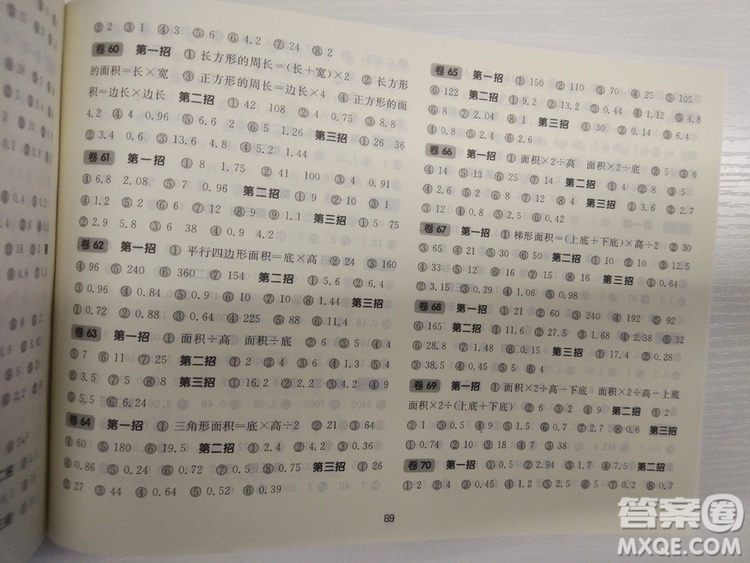 ①2 ②3 ③1 ④3 ⑤6 ⑥4.2 ⑦24 ⑧2
卷60 第一招 ①长方形的周长=(长+宽)×2 ②长方形
的面积=长×宽 ③正方形的周长=边长×4 ④正方形的面
积=边长×边长 第二招 ①42 108 ②4 0.75 ③8.8
4.2 ④4 0.96 ⑤6.6 2 ⑥5 1.26 第三招 ①36
②3.4 0.6 ③13.6 4.8 ④5.2 1.44
卷61 第一招 ①8 1.75 ②41 100 ③4 0.91
④6.8 2.08 ⑤7 0.96 第二招 ①9 ②10 ③1
④1.2 ⑤2 ⑥6 ⑦12 ⑧9 ⑨1.1 第三招 ①5 75
②2.9 5.8 ③6 38 ④0.9 4.2
卷62 第一招 ①平行四边形面积=底×高 ②24 ③160
④96 ⑤240 ⑥360 ⑦154 第二招 ①5.6 ②6.4
③0.96 ④0.84 ⑤0.9 ⑥10 ⑦10 ⑧1.44 第三招
①0.72 ②0.88 ③0.64 ④225 ⑤88 ⑥11.4
卷63 第一招 ①面积÷高 面积÷底 ②2 ③4 ④13
⑤7 ⑥11 ⑦25 第二招 ①2 ②4 ③6 ④1.3 ⑤4
⑥3.5 ⑦5 ⑧8 第三招 ①16.2 ②2.2 ③4.2 ④3.2
⑤5 ⑥6.24
卷64 第一招 ①三角形面积=底×高÷2 ②21 ③64
④60 ⑤180 ⑥19.5 第二招 ①2.4 ②4.2 ③0.36
④0.86 ⑤0.24 ⑥0.5 ⑦0.8 ⑧0.75 第三招 ①26
②27 ③44 ④0.64 ⑤0.52 ⑥0.39
卷65 第一招 ①150 ②110 ③70 ④25 ⑤105
⑥122 第二招 ①9.2 ②13.2 ③0.44 ④1.8 ⑤4.8
⑥8 ⑦2.04 ⑧1 第三招 ①30 ②0.14 ③6.4
④0.8 ⑤2.4 ⑥2.6
卷66 第一招 ①面积×2÷高 面积×2÷底 ②5 ③6
④14 ⑤13 ⑥25 第二招 ①4 ②4 ③8 ④5
⑤9 ⑥7 ⑦8 ⑧4 第三招 ①3.6 ②2.7
③12 ④0.8 ⑤2.5 ⑥0.42
卷67 第一招 ①梯形面积=(上底+下底)×高÷2 ②30
③65 ④21 ⑤31 第二招 ①5 ②10 ③12.5
④3.3 ⑤15 ⑥2.16 ⑦9 ⑧0.91 第三招 ①0.64
②3.15 ③0.42 ④1.06 ⑤0.98
卷68 第一招 ①21 ②60 ③240 ④192 ⑤92
⑥165 第二招 ①11.6 ②27.5 ③1.68 ④2.38 ⑤32
⑥28.8 ⑦1.48 ⑧0.15 第三招 ①54 ②14.4
③38.5 ④0.45 ⑤25 ⑥0.84
卷69 第一招 ①面积×2÷高-下底 面积×2÷高-上底
面积×2÷(上底+下底) ②6 ③2 ④9 第二招 ①2
②1 ③0.9 ④1.5 ⑤1.5 ⑥0.7 ⑦2.7 ⑧0.6 第三招
①0.74 ②10 ③18 ④0.4 ⑤2 ⑥0.38
卷70 第一招 ①0.5 ②2.94 ③1.7 ④7.5 第二招
①2 ②4 ③0.45 ④1.2 ⑤0.5 ⑥1.2 ⑦0.2 ⑧0.7
89
答案圈
MXQE.COM